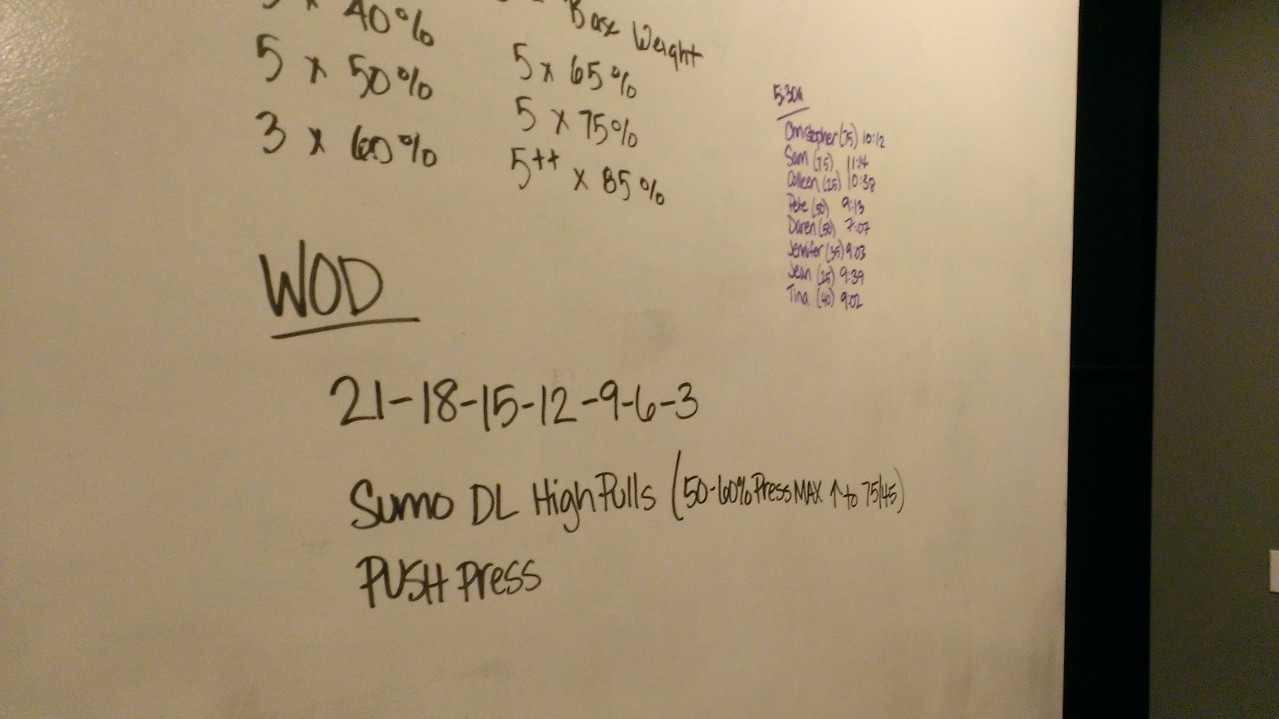 40%
5 x 50%
3 x 60%
Base Weight
5 x 65%
5 x 75%
5++ x 85%
5:30a
Christopher (75) 10:12
Sam (75) 11:14
Colleen (25) 10:38
Pete (50) 9:13
Daren (50) 7:07
Jennifer (35) 9:03
Jean (25) 9:39
Tina (40) 9:02
WOD
21-18-15-12-9-6-3
Sumo DL High Pulls (50-60% Press MAX ↑ to 75/45)
PUSH Press